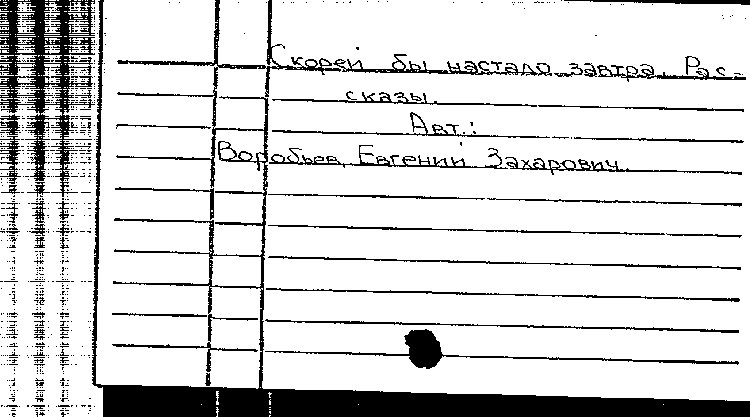 Скорей бы настало завтра. Рас-
сказы.
Авт.:
Воробьев, Евгений Захарович.